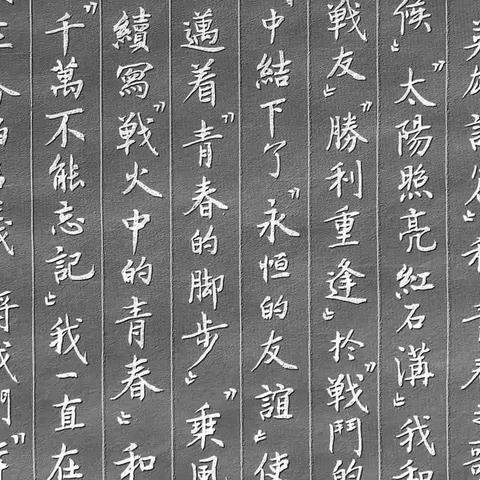 英雄 和“青春之歌
候”“太陽照亮紅石溝”我和
戰友”“勝利重逢”於“戰鬥的
中結下了“永恒的友誼”使
邁着“青春的脚步”“乘風
續寫“戰火中的青春”和
“千萬不能忘記”我一直在
將我們